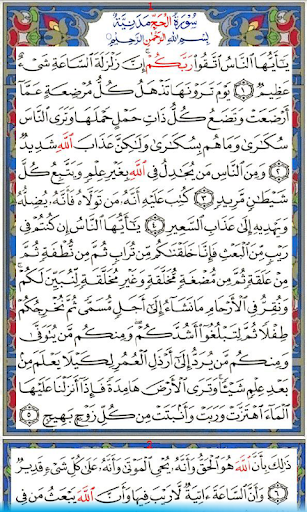 سُورَةُ الحَجّ مَدَنِيَّةٌ
بِسْمِ اللَّهِ الرَّحْمَٰنِ الرَّحِيمِ
يَٰٓأَيُّهَا النَّاسُ اتَّقُوا۟ رَبَّكُمْ إِنَّ زَلْزَلَةَ السَّاعَةِ شَىْءٌ
عَظِيمٌ ١ يَوْمَ تَرَوْنَهَا تَذْهَلُ كُلُّ مُرْضِعَةٍ عَمَّآ
أَرْضَعَتْ وَتَضَعُ كُلُّ ذَاتِ حَمْلٍ حَمْلَهَا وَتَرَى النَّاسَ
سُكَٰرَىٰ وَمَا هُم بِسُكَٰرَىٰ وَلَٰكِنَّ عَذَابَ اللَّهِ شَدِيدٌ
٢ وَمِنَ النَّاسِ مَن يُجَٰدِلُ فِى اللَّهِ بِغَيْرِ عِلْمٍ وَيَتَّبِعُ كُلَّ
شَيْطَٰنٍ مَّرِيدٍ ٣ كُتِبَ عَلَيْهِ أَنَّهُۥ مَن تَوَلَّاهُ فَأَنَّهُۥ يُضِلُّهُۥ
وَيَهْدِيهِ إِلَىٰ عَذَابِ السَّعِيرِ ٤ يَٰٓأَيُّهَا النَّاسُ إِن كُنتُمْ فِى
رَيْبٍ مِّنَ الْبَعْثِ فَإِنَّا خَلَقْنَٰكُم مِّن تُرَابٍ ثُمَّ مِن نُّطْفَةٍ ثُمَّ
مِنْ عَلَقَةٍ ثُمَّ مِن مُّضْغَةٍ مُّخَلَّقَةٍ وَغَيْرِ مُخَلَّقَةٍ لِّنُبَيِّنَ لَكُمْ
وَنُقِرُّ فِى الْأَرْحَامِ مَا نَشَآءُ إِلَىٰٓ أَجَلٍ مُّسَمًّى ثُمَّ نُخْرِجُكُمْ
طِفْلًا ثُمَّ لِتَبْلُغُوٓا۟ أَشُدَّكُمْ وَمِنكُم مَّن يُتَوَفَّىٰ
وَمِنكُم مَّن يُرَدُّ إِلَىٰٓ أَرْذَلِ الْعُمُرِ لِكَيْلَا يَعْلَمَ مِنۢ
بَعْدِ عِلْمٍ شَيْـًٔا وَتَرَى الْأَرْضَ هَامِدَةً فَإِذَآ أَنزَلْنَا عَلَيْهَا
الْمَآءَ اهْتَزَّتْ وَرَبَتْ وَأَنۢبَتَتْ مِن كُلِّ زَوْجٍۭ بَهِيجٍ ٥
ذَٰلِكَ بِأَنَّ اللَّهَ هُوَ الْحَقُّ وَأَنَّهُۥ يُحْىِ الْمَوْتَىٰ وَأَنَّهُۥ عَلَىٰ كُلِّ شَىْءٍ قَدِيرٌ
٦ وَأَنَّ السَّاعَةَ ءَاتِيَةٌ لَّا رَيْبَ فِيهَا وَأَنَّ اللَّهَ يَبْعَثُ مَن فِى